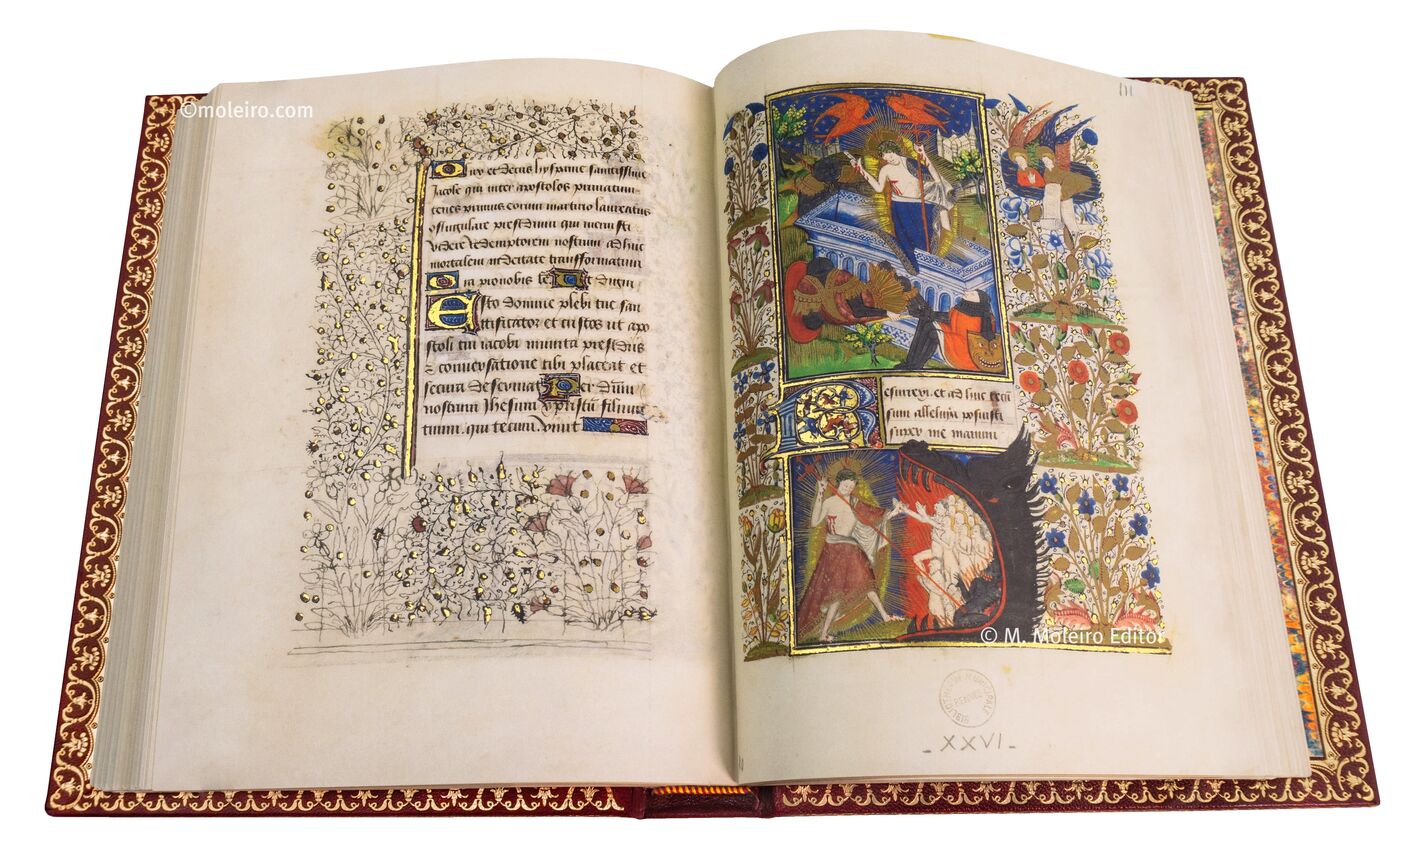 ©moleiro.com
O lux et decus hyspanie sanctissime
Jacobe qui inter apostolos primatum
tenes primus eorum martirio laureatus
O singulare presidium qui meruisti
videre redemptorem nostrum ad huc
mortalem in deitate transformatum
Ora pro nobis be
Esto domine plebi tue san
ctificator et custos ut apo
stoli tui iacobi munita presidiis
et conversatione tibi placeat et
secura deserviat Per dnm
nostrum Jhesum xpristum filium
tuum. qui tecum vivit
III
Resurrexi et ad huc tecum
sum alleluya posuisti
super me manum
© M. Moleiro Editor
BIBLIOTHEQUE MUNICIPALE
RENNES
- XXVI -